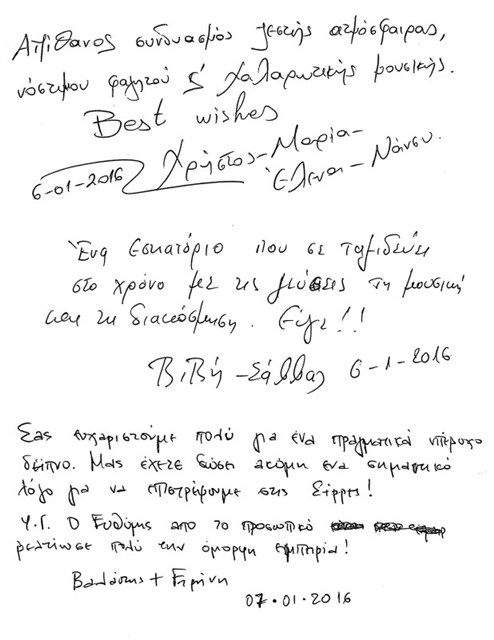 Απίθανος συνδυασμός ζεστής ατμόσφαιρας,
νόστιμου φαγητού & χαλαρωτικής μουσικής.
Best wishes
6-01-2016 Χρήστος-Μαρία-
Έλενα-Νάνσυ.
Ένα εστιατόριο που σε ταξιδεύει
στο χρόνο με τις γεύσεις τη μουσική
και τη διακόσμηση. Εύγε!!
Βιβή-Σάββας 6-1-2016
Σας ευχαριστούμε πολύ για ένα πραγματικά υπέροχο
δείπνο. Μας έχετε δώσει ακόμη ένα σημαντικό
λόγο για να επιστρέψουμε στις Σέρρες!
Υ.Γ. Ο Ευθύμης απο το προσωπικό
βελτίωσε πολύ την όμορφη εμπειρία!
+ Ειρήνη
07.01.2016